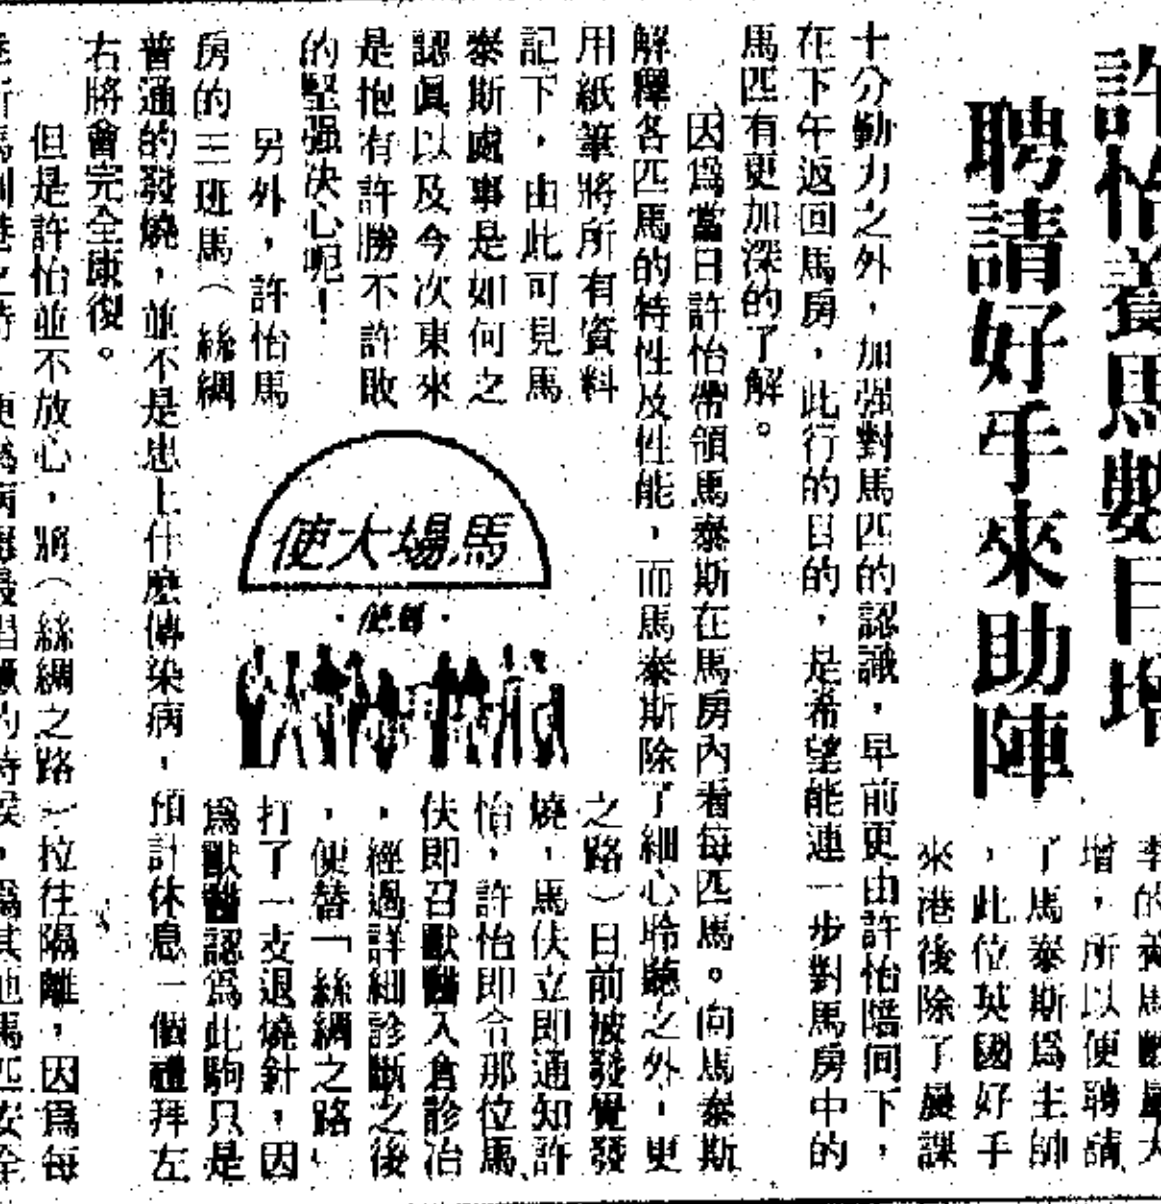 許怡養馬數日增
聘請好手來助陣
增，所以便聘請
了馬泰斯爲主帥
，此位英國好手
來港後除了晨課
十分勤力之外，加强對馬匹的認識，早前更由許怡陪同下，
在下午返回馬房，此行的目的，是希望能連一步對馬房中的
馬匹有更加深的了解。
因爲當日許怡帶領馬泰斯在馬房內看每匹馬。向馬泰斯
解釋各匹馬的特性及性能，而馬泰斯除了細心聆聽之外，更
用紙筆將所有資料
記下，由此可見馬
泰斯處事是如何之
認眞以及今次東來
是抱有許勝不許敗
的堅强决心呢！
另外，許怡馬
房的三班馬（絲綢
之路）日前被發覺發
燒，馬伕立即通知許
怡，許怡即令那位馬
伕即召獸醫入倉診治
，經過詳細診斷之後
，便替「絲綢之路」
打了一支退燒針，因
爲獸醫認爲此駒只是
普通的發燒，並不是患上什麼傳染病，預計休息一個禮拜左
右將會完全康復。
但是許怡並不放心，將（絲綢之路）拉往隔離，因爲每
馬場大使